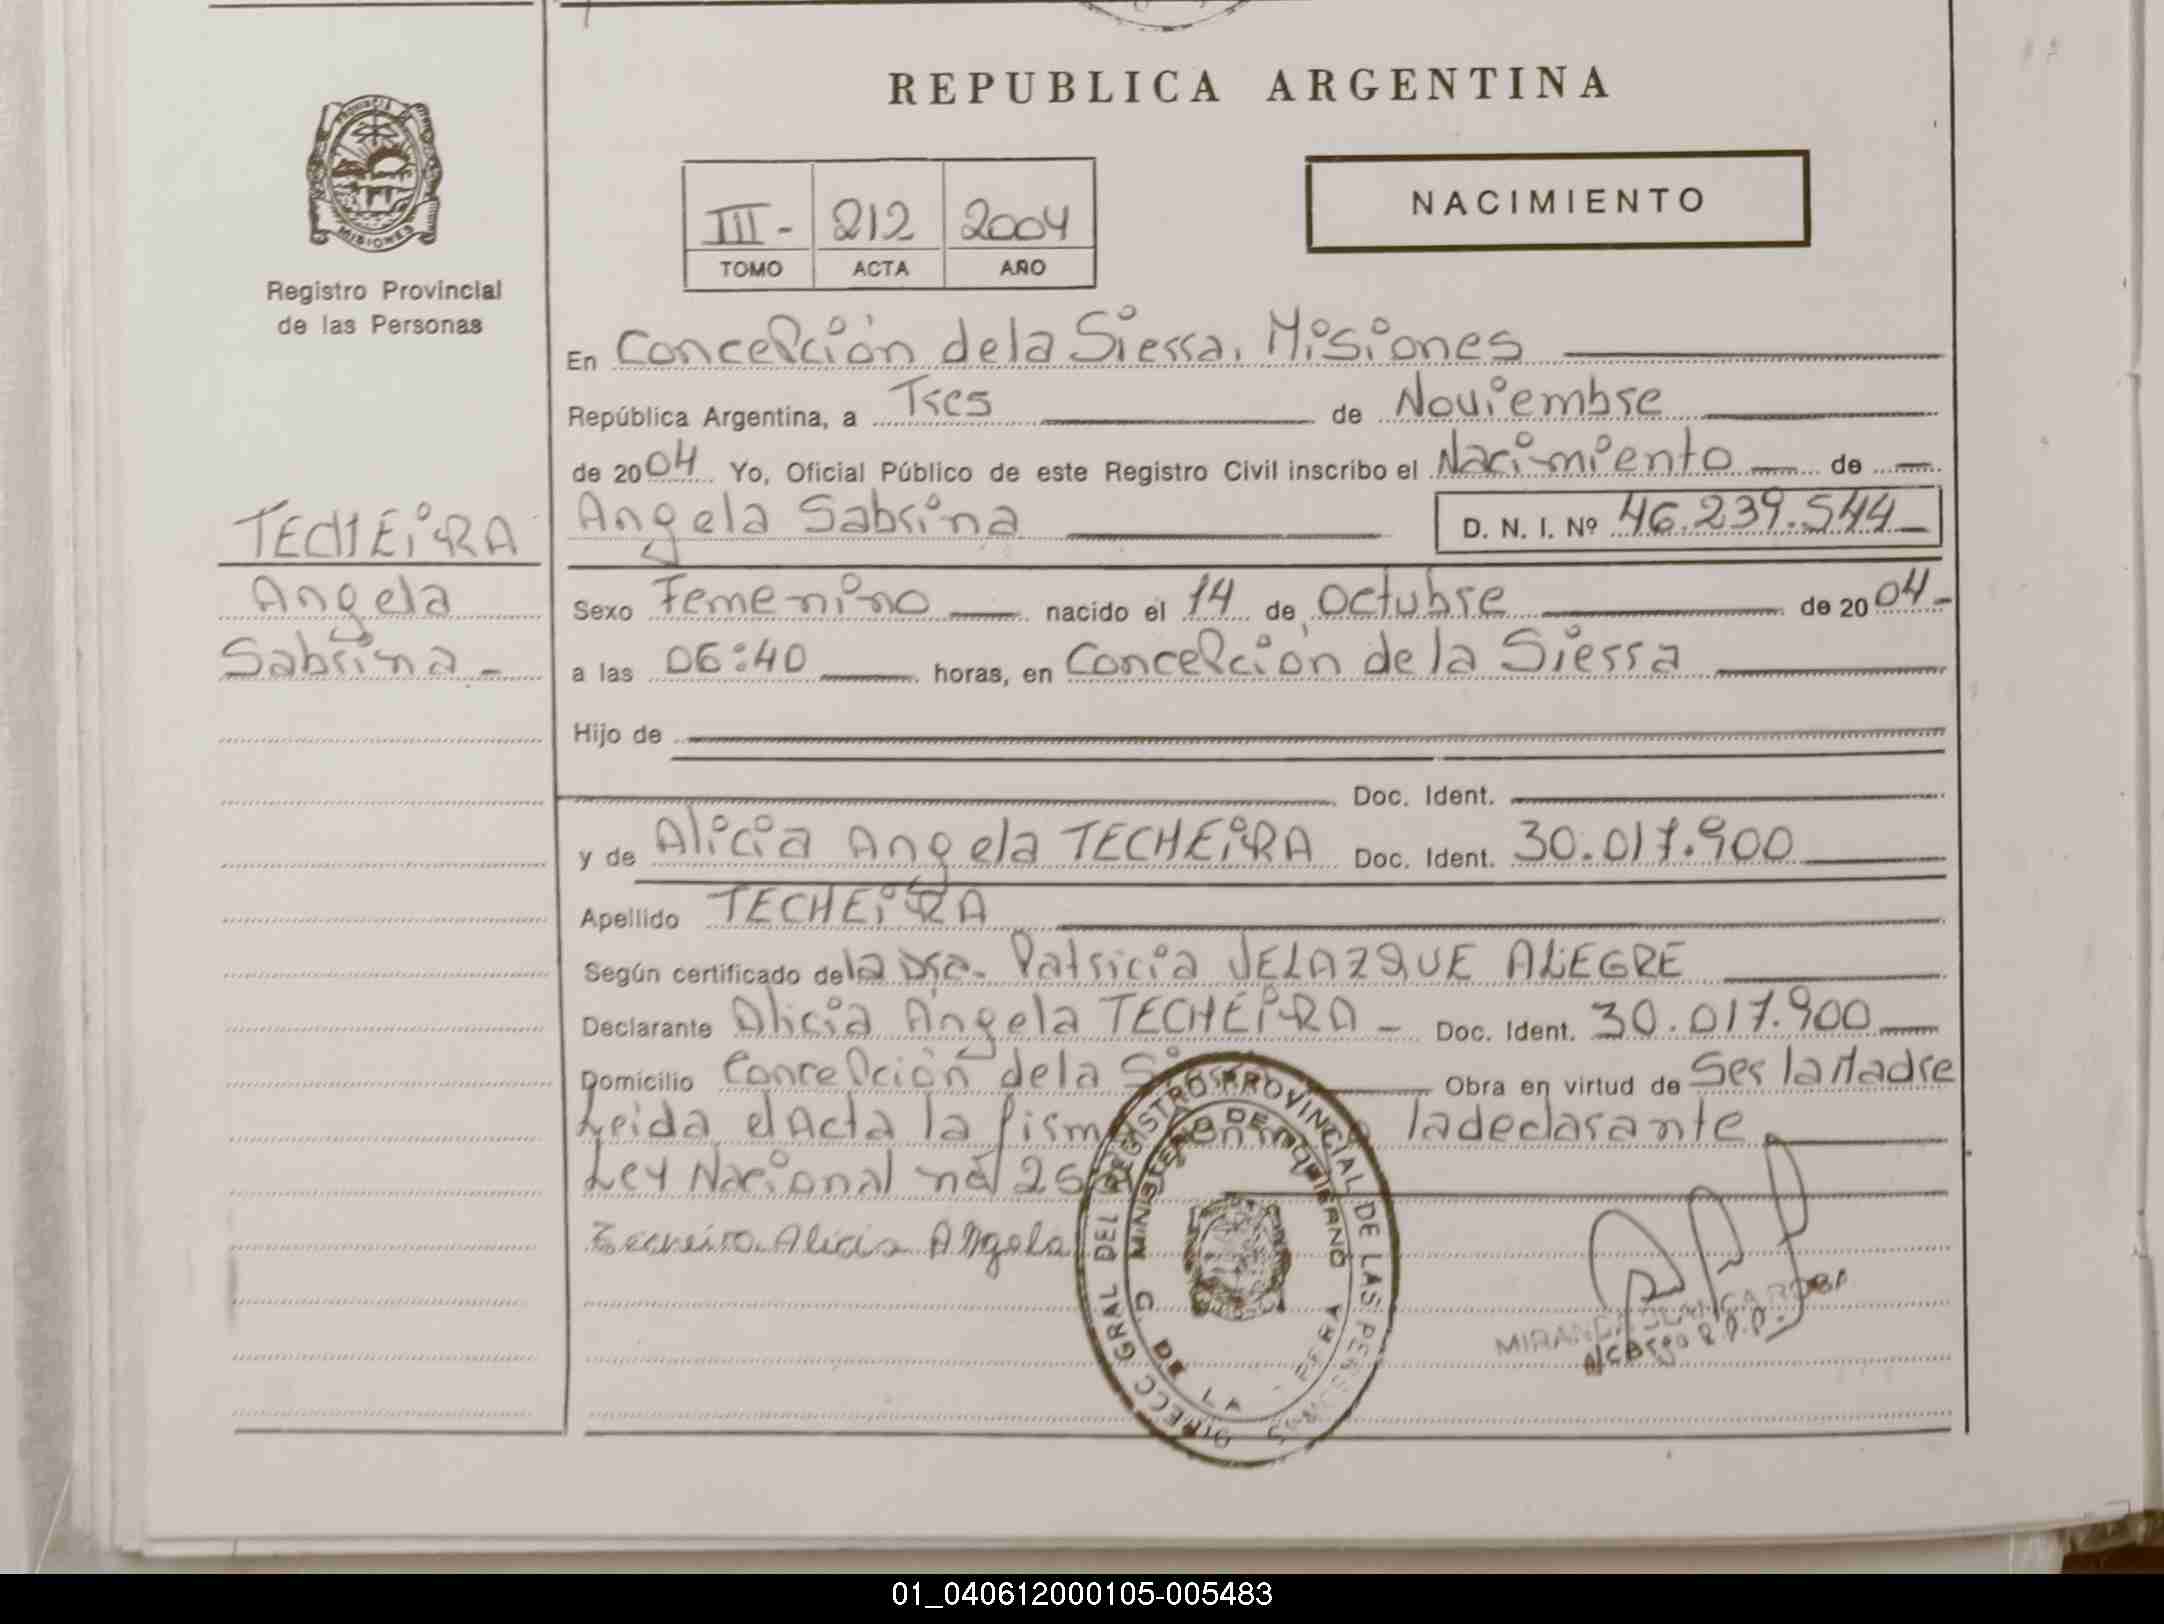 REPUBLICA ARGENTINA
NACIMIENTO
III - 212 2004
TOMO ACTA AÑO
MISIONES
Registro Provincial
de las Personas
TECHEiRA
Angela
Sabrina -
En Concepción de la Sierra, Misiones
República Argentina, a Tres de Noviembre
de 2004 Yo, Oficial Público de este Registro Civil inscribo el Nacimiento de
Angela Sabrina D. N. I. Nº 46.239.544
Sexo Femenino nacido el 14 de Octubre de 2004-
a las 06:40 horas, en Concepción de la Sierra
Hijo de
Doc. Ident.
y de Alicia Angela TECHEiRA Doc. Ident. 30.017.900
Apellido TECHEiRA
Según certificado de la Dra. Patricia VELAZQUE ALEGRE
Declarante Alicia Angela TECHEiRA - Doc. Ident. 30.017.900
Domicilio Concepción de la Obra en virtud de Ser la Madre
Leida el Acta la la declarante
Ley Nacional nº
Techeira Alicia Angela
DIRECC GRAL DEL REGISTRO PROVINCIAL DE LAS PERSONAS
MINISTERIO DE GOBIERNO
MIRANDA BLANCA ROSA
A/Cargo R.P.P.
01_040612000105-005483